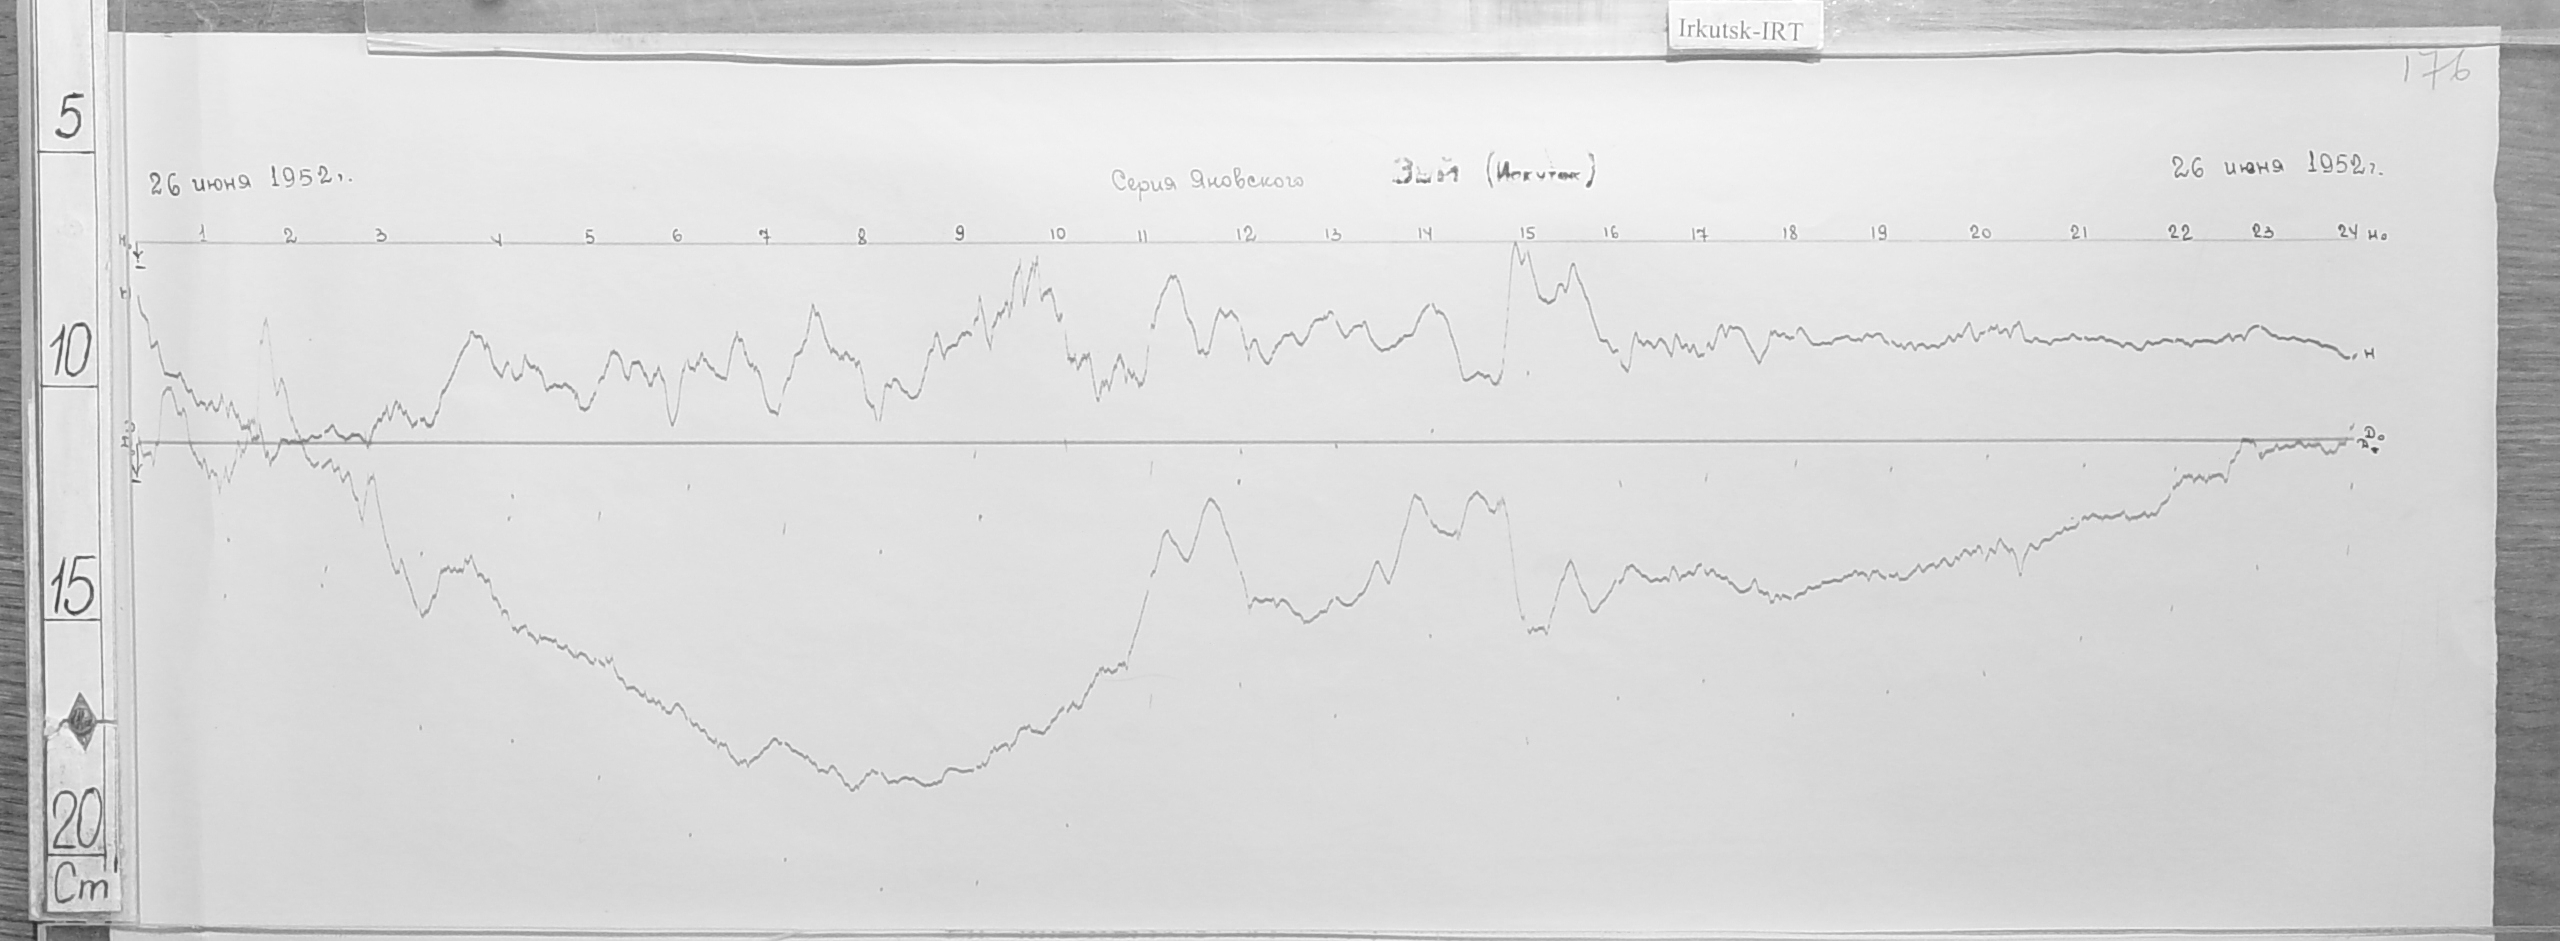 Irkutsk-IRT
176
26 июня 1952г. Серия Яновского Зый (Иркутск) 26 июня 1952г.
1 2 3 4 5 6 7 8 9 10 11 12 13 14 15 16 17 18 19 20 21 22 23 24 H₀
H
H
D₀
5
10
15
20
Cm